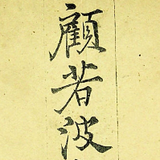 顧若波